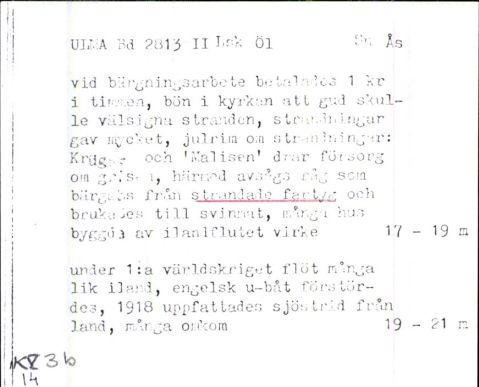 ULMA Bd 2813 II Lsk Öl Sn Ås
vid bärgningsarbete betalades 1 kr
i timmen, bön i kyrkan att gud skul-
le välsigna stranden, strandningar
gav mycket, julrim om strandningar:
Krüger och 'Malisen' drar försorg
om grisen, härmed avsågs råg som
bärgats från strandade fartyg och
brukades till svinmat, många hus
byggda av ilandflutet virke 17 - 19 m
under 1:a världskriget flöt många
lik iland, engelsk u-båt förstör-
des, 1918 uppfattades sjöstrid från
land, många omkom 19 - 21 m
3b
14